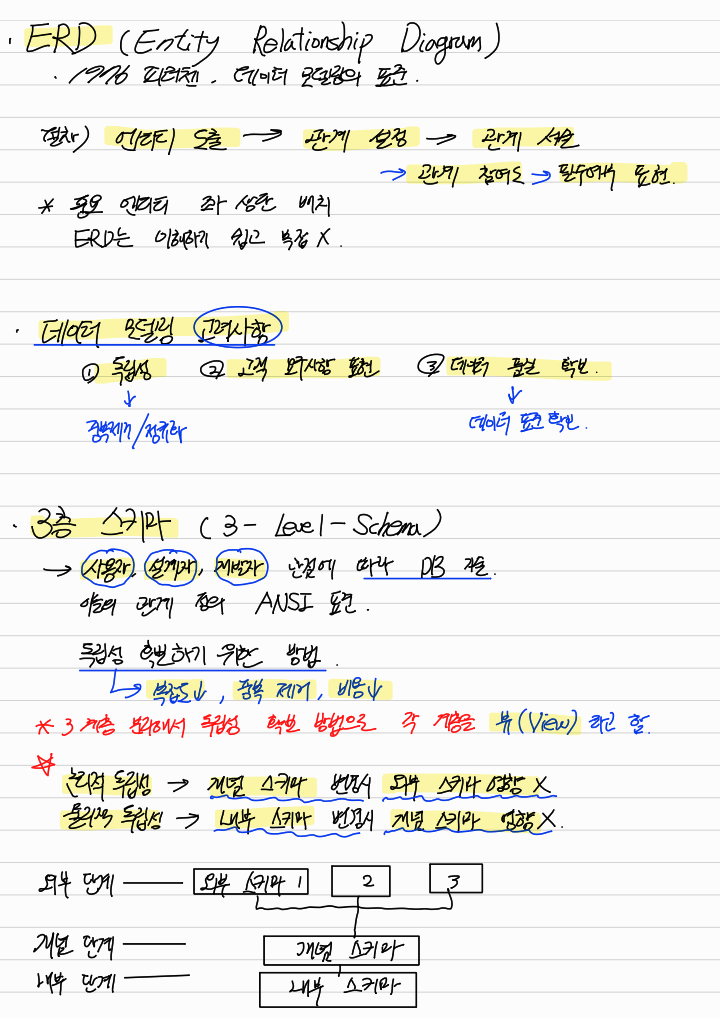 · ERD (Entity Relationship Diagram)
· 1976 피터첸, 데이터 모델링의 표준.
절차) 엔터티 도출 → 관계 설정 → 관계 서술
→ 관계 참여도 → 필수여부 표현.
* 중요 엔터티 좌 상단 배치
ERD는 이해하기 쉽고 복잡 X.
· 데이터 모델링 고려사항
① 독립성 ② 고객 요구사항 표현 ③ 데이터 품질 확보.
↓ ↓
중복제거/정규화 데이터 표준 확보.
· 3층 스키마 (3-Level-Schema)
→ 사용자, 설계자, 개발자 관점에 따라 DB 기술.
이들의 관계 정의 ANSI 표준.
독립성 확보하기 위한 방법.
→ 복잡도↓, 중복 제거, 비용↓
* 3계층 분리해서 독립성 확보 방법으로 각 계층을 뷰(View) 라고 함.
☆
논리적 독립성 → 개념 스키마 변경시 외부 스키마 영향 X
물리적 독립성 → 내부 스키마 변경시 개념 스키마 영향 X.
외부 단계 외부 스키마 1 2 3
개념 단계 개념 스키마
내부 단계 내부 스키마